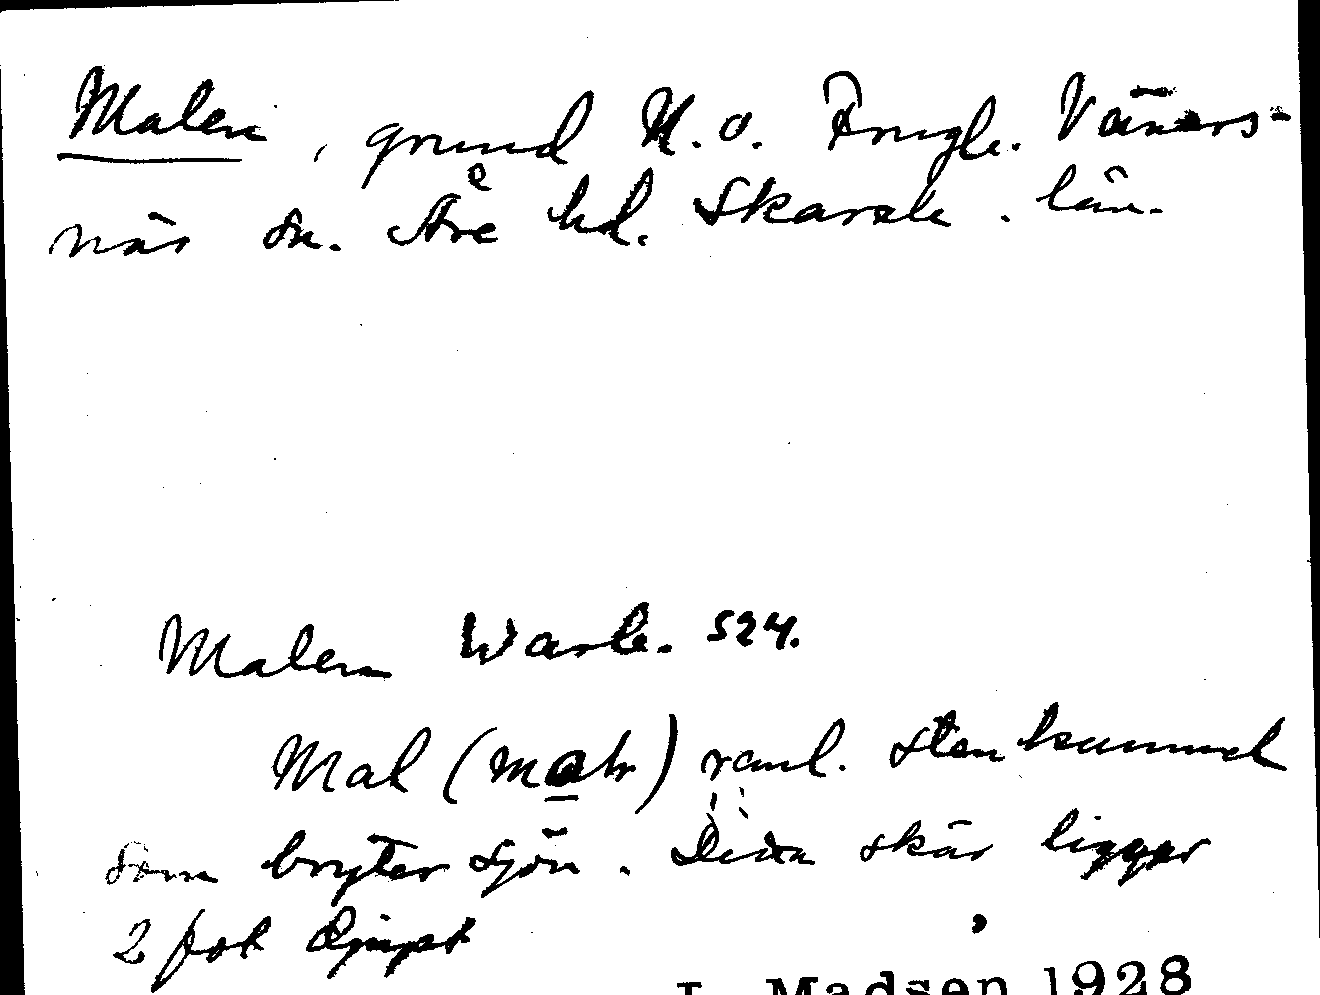 Malen, grund N.O. Frugle. Väners-
näs sn. Åse hd. Skarab. län.
Malen Warb. 524.
Mal (mahr) vanl. sten kummel
som bryter sjön. Detta skär ligger
2 fot djupt
L. Madsen 1928